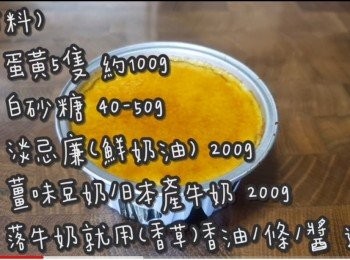 料)
蛋黃5隻 約100g
白砂糖 40-50g
淡忌廉(鮮奶油) 200g
薑味豆奶/日本產牛奶 200g
落牛奶就用(香草)香油/條/醬